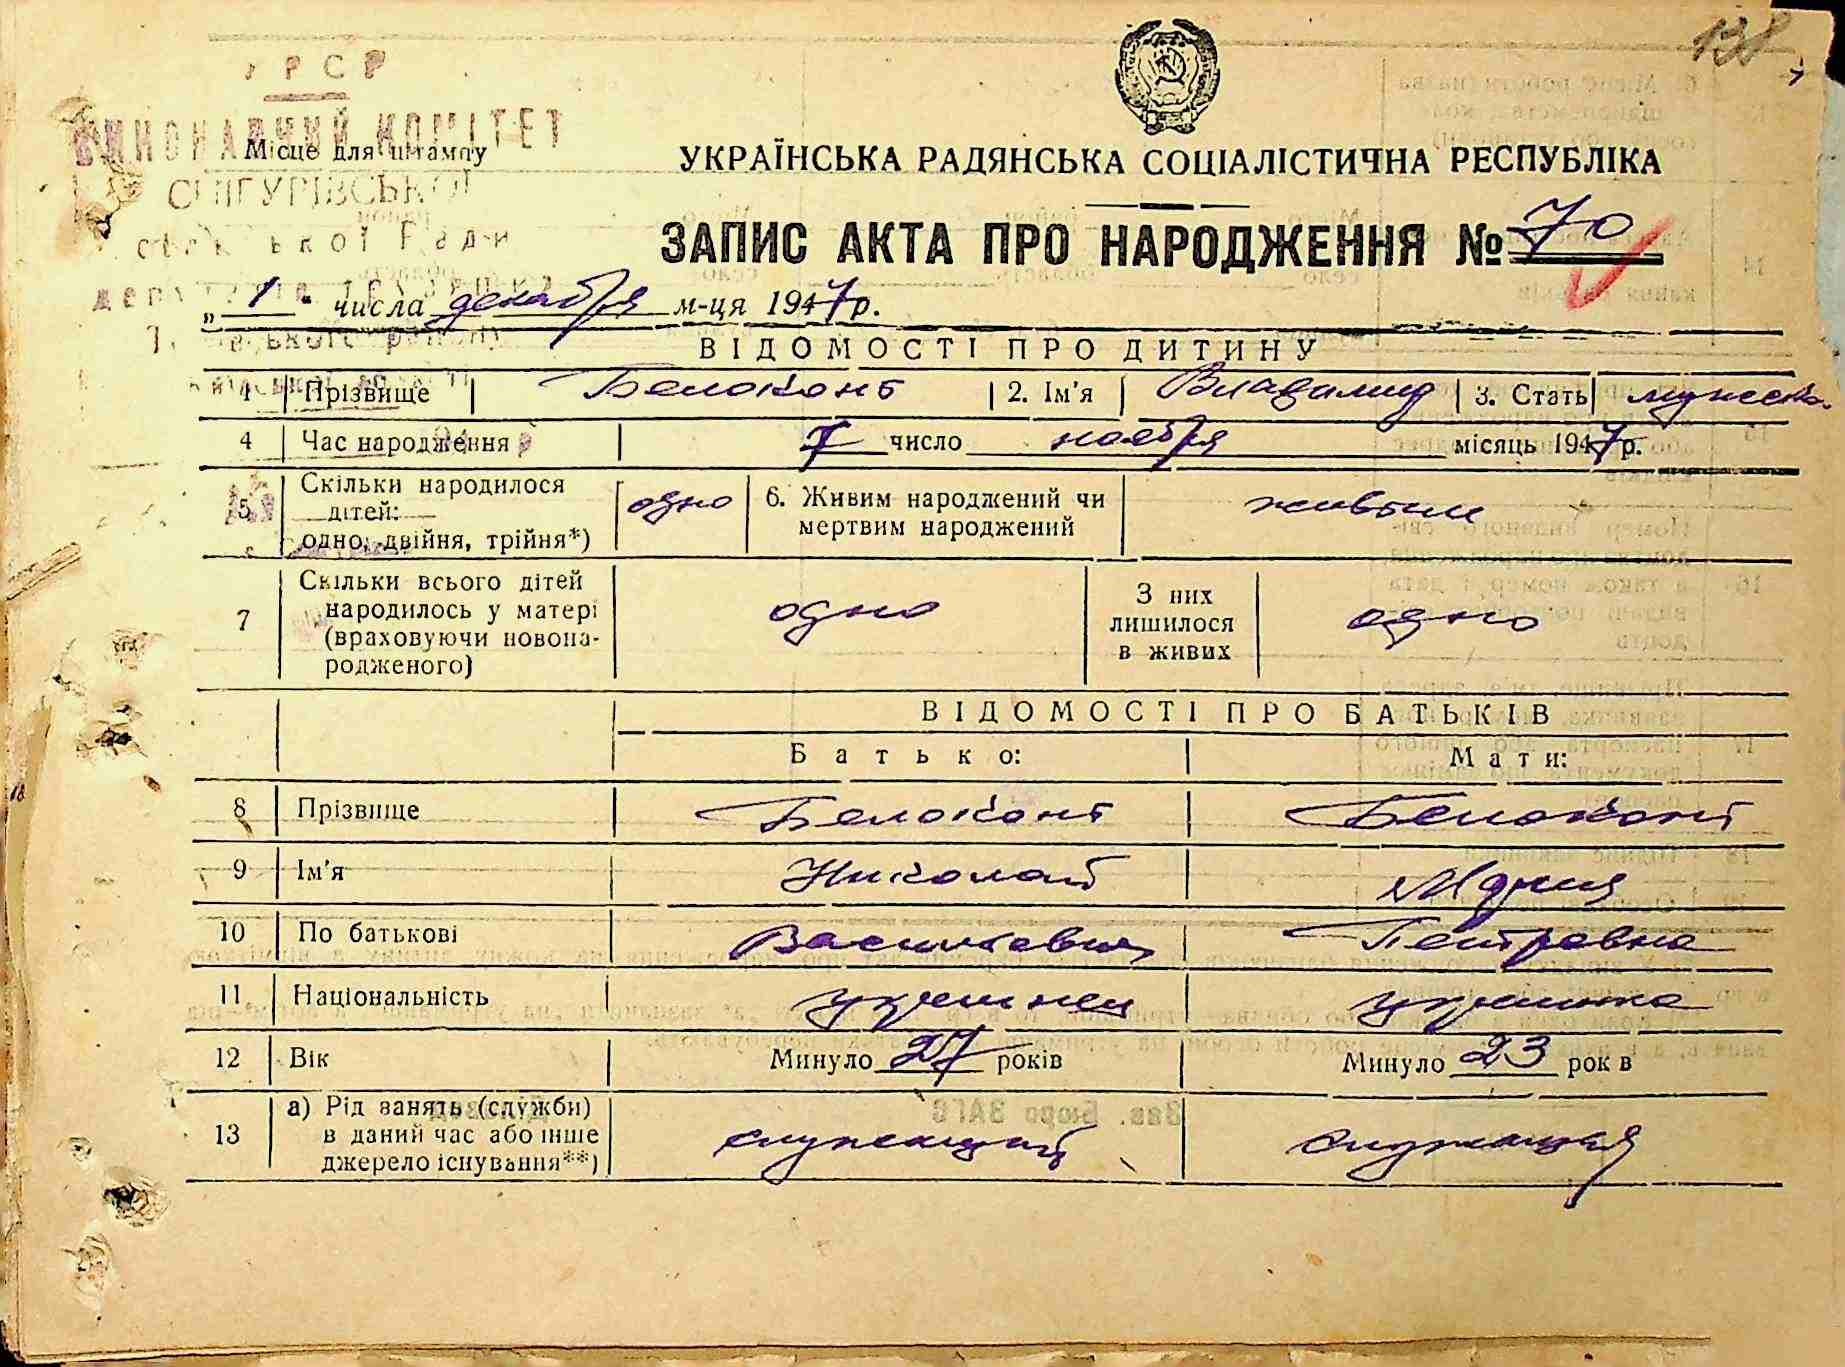 138
УРСР
ВИКОНАВЧИЙ КОМІТЕТ
Місце для штампу
СНІГУРІВСЬКОЇ
сільської Ради
депутатів трудящих
УКРАЇНСЬКА РАДЯНСЬКА СОЦІАЛІСТИЧНА РЕСПУБЛІКА
ЗАПИС АКТА ПРО НАРОДЖЕННЯ № 70
„1" числа декабря м-ця 1947 р.
ського району
Київської області
ВІДОМОСТІ ПРО ДИТИНУ
1 Прізвище Белоконь 2. Ім'я Владимир 3. Стать мужеск.
4 Час народження 7 число ноября місяць 1947 р.
5 Скільки народилося дітей: одно, двійня, трійня*) одно 6. Живим народжений чи мертвим народжений живым
7 Скільки всього дітей народилось у матері (враховуючи новонародженого) одно З них лишилося в живих одно
ВІДОМОСТІ ПРО БАТЬКІВ
Батько: Мати:
8 Прізвище Белоконь Белоконь
9 Ім'я Николай Мария
10 По батькові Васильевич Петровна
11 Національність украинец украинка
12 Вік Минуло 27 років Минуло 23 рок в
13 а) Рід занять (служби) в даний час або інше джерело існування**) служащий служащая